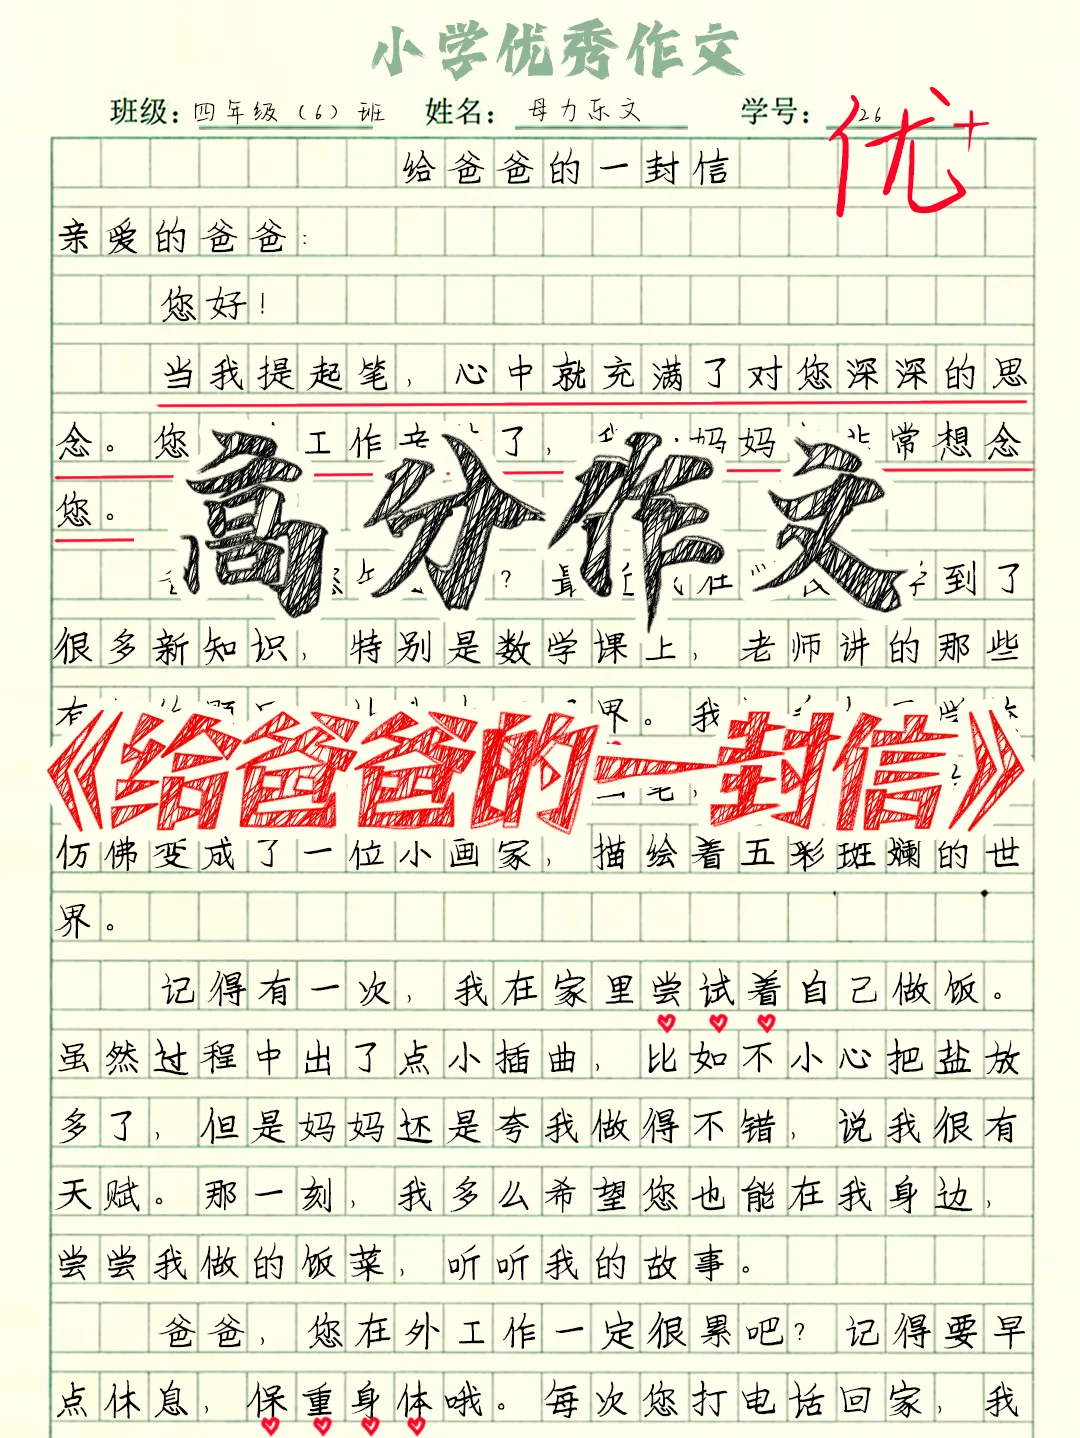 小学优秀作文
班级：四年级（6）班 姓名：母力乐文 学号：26
优+
给爸爸的一封信
亲爱的爸爸：
您好！
当我提起笔，心中就充满了对您深深的思
念。您 工作辛 了，我 妈妈 非常想念
您。
高分作文
？最近我在 学到了
很多新知识，特别是数学课上，老师讲的那些
有 界。我
《给爸爸的一封信》
笔，
仿佛变成了一位小画家，描绘着五彩斑斓的世
界。
记得有一次，我在家里尝试着自己做饭。
虽然过程中出了点小插曲，比如不小心把盐放
多了，但是妈妈还是夸我做得不错，说我很有
天赋。那一刻，我多么希望您也能在我身边，
尝尝我做的饭菜，听听我的故事。
爸爸，您在外工作一定很累吧？记得要早
点休息，保重身体哦。每次您打电话回家，我